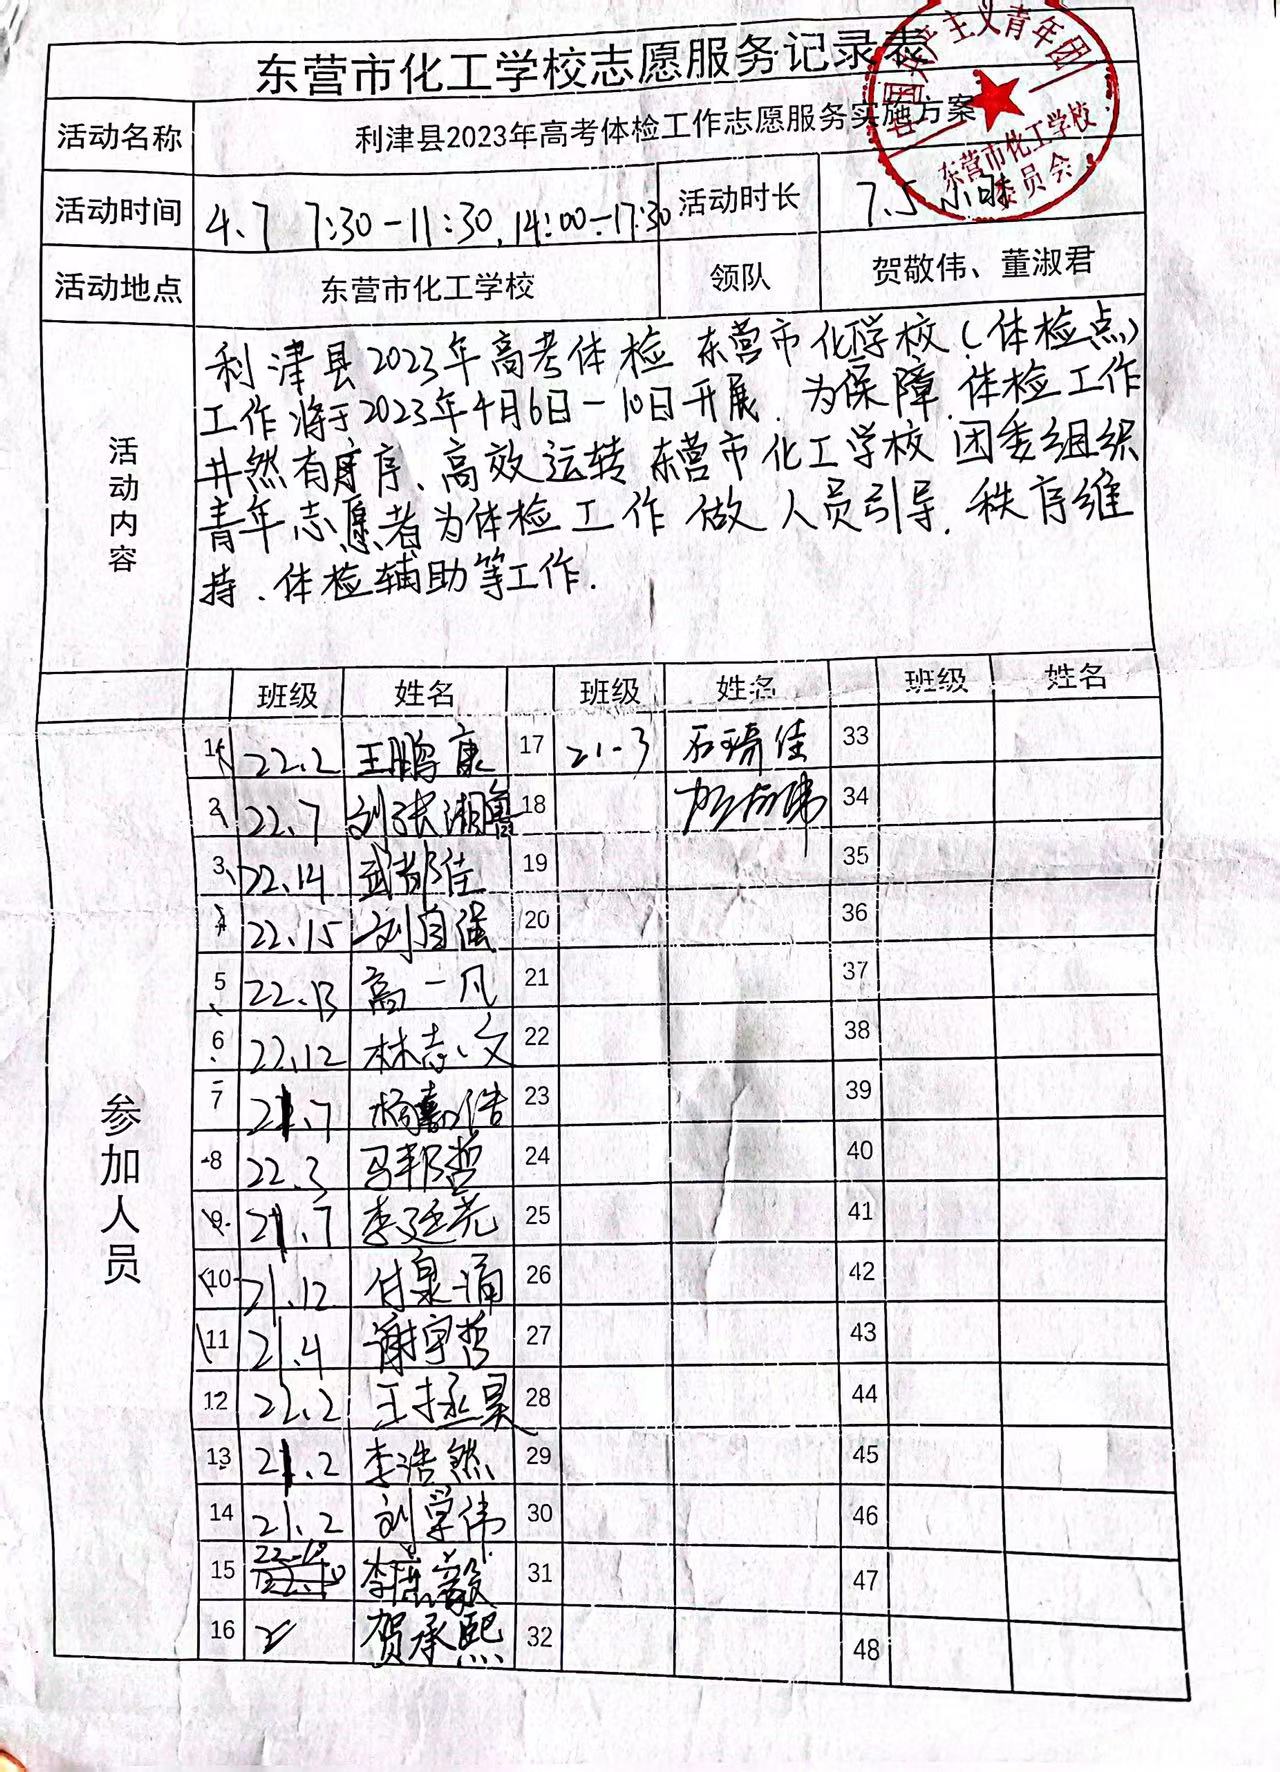 东营市化工学校志愿服务记录表
中国共产主义青年团
东营市化工学校
委员会
活动名称 利津县2023年高考体检工作志愿服务实施方案
活动时间 4.7 7:30-11:30, 14:00-17:30 活动时长 7.5小时
活动地点 东营市化工学校 领队 贺敬伟、董淑君
活动内容
利津县2023年高考体检 东营市化学校(体检点)
工作将于2023年4月6日-10日开展. 为保障.体检工作
井然有序、高效运转 东营市化工学校 团委组织
青年志愿者为体检工作做人员引导. 秩序维
持.体检辅助等工作.
班级 姓名 班级 姓名 班级 姓名
参加人员
1 22.2 王鹏康 17 21-3 石琦佳 33
2 22.7 刘张湘鲁 18 34
3 22.14 武郝佳 19 35
4 22.15 刘自强 20 36
5 22.13 高一凡 21 37
6 22.12 林志文 22 38
7 21.7 杨嘉浩 23 39
8 22.3 马邦哲 24 40
9 21.7 李廷尧 25 41
10 21.12 付泉涌 26 42
11 21.4 谢宇哲 27 43
12 22.2 王拯昊 28 44
13 21.2 李浩然 29 45
14 21.2 刘学伟 30 46
15 22-10 31 47
16 贺承熙 32 48